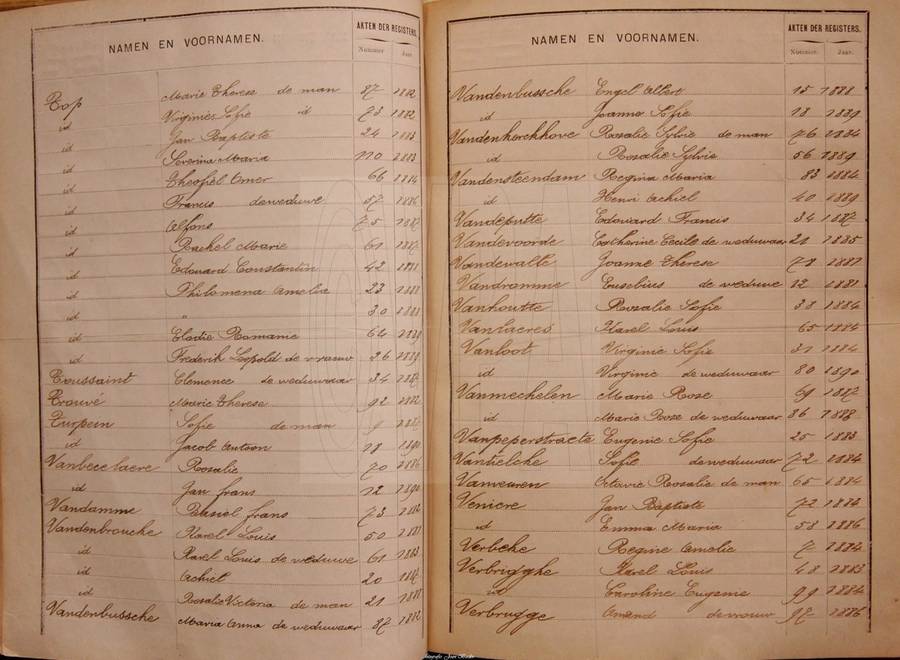 NAMEN EN VOORNAMEN. AKTEN DER REGISTERS.
Nummer Jaar.
Top Marie Therese de man 87 1882
id Virginie Sofie id 73 1882
id Jan Baptiste 24 1883
id Severina Maria 110 1883
id Theofiel Omer 66 1884
id Francis de weduwe 57 1886
id Alfons 75 1887
id Rachel Marie 61 1887
id Edouard Constantin 42 1881
id Philomena Amelia 23 1888
id " 30 1888
id Elodie Romanie 64 1889
id Frederik Leopold de vrouw 26 1889
Toussaint Clemence de weduwaar 34 1887
Trouvé Marie Therese 92 1882
Turpein Sofie de man 9
id Jacob Antoon 18 1890
Vanbecelaere Rosalie 70 1886
id Jan frans 12 1890
Vandamme Karel frans 73 1882
Vandenbrouche Karel Louis 50 1881
id Karel Louis de weduwe 61 1883
id Achiel 20
id Rosalie Victoria de man 21 1888
Vandenbussche Maria Anna de weduwaar 87 1882
NAMEN EN VOORNAMEN. AKTEN DER REGISTERS.
Nummer. Jaar.
Vandenbussche Engel Albert 15 1888
id Joanna Sofie 18 1889
Vandenkerckhove Rosalie Sylvie de man 76 1884
id Rosalie Sylvie 56 1889
Vandensteendam Regina Maria 83 1884
id Henri Achiel 40 1889
Vandeputte Edouard Francis 34 1887
Vandevoorde Catherine Cecile de weduwaar 21 1885
Vandewalle Joanna Therese 71 1887
Vandromme Eusebius de weduwe 12 1881
Vanhoutte Rosalie Sofie 38 1884
Vanlacres Karel Louis 65 1884
Vanloot Virginie Sofie 31 1884
id Virginie de weduwaar 80 1890
Vanmechelen Marie Rose 69 1887
id Marie Roze de weduwaar 86 1888
Vanpeperstraete Eugenie Sofie 25 1883
Vantielche Sofie de weduwaar 72 1884
Vanveuren Octavie Rosalie de man 65 1884
Veniere Jan Baptiste 72 1884
id Emma Maria 53 1886
Verbeke Regine Amelie 7 1884
Verbrigghe Karel Louis 48 1883
id Caroline Eugenie 99 1884
Verbrugge Amand de vrouw 97 1886